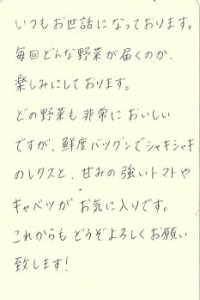 いつもお世話になっております。
毎回どんな野菜が届くのか、
楽しみにしております。
どの野菜も非常においしい
ですが、鮮度バツグンでシャキシャキ
のレタスと、甘みの強いトマトや
キャベツがお気に入りです。
これからもどうぞよろしくお願い
致します!